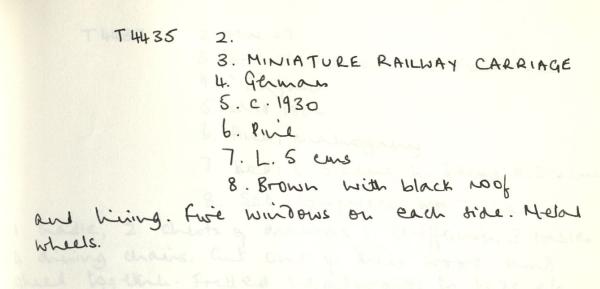 T4435 2.
3. MINIATURE RAILWAY CARRIAGE
4. German
5. c. 1930
6. Pine
7. L. 5 cms
8. Brown with black roof
and lining. Five windows on each side. Metal
wheels.